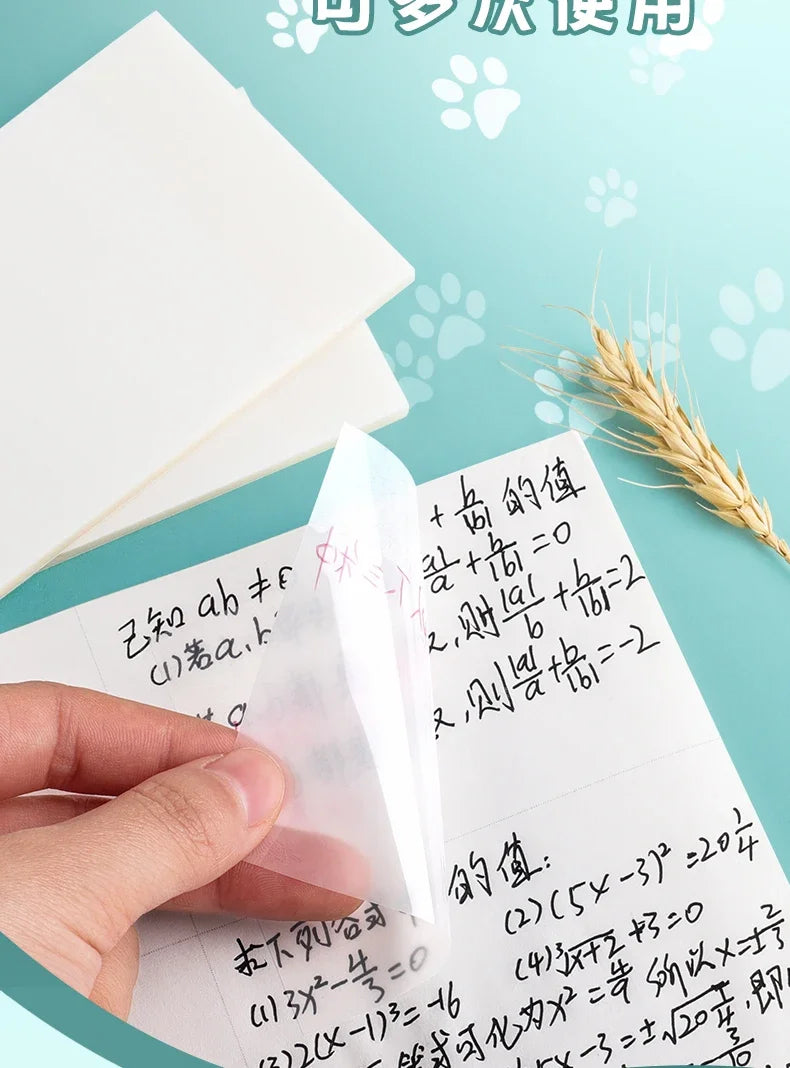 可多次使用
+ b/|b| 的值
已知 ab ≠
|a|/a + b/|b| = 0
(1)若a,b
,则 |a|/b + b/|b| = 2
,则 |a|/a + b/|b| = -2
的值:
(2)(5x-3)² = 20 1/4
求下列各式
(4)³√x+2 +3=0
(1)3x² - 4/3 = 0
(3)2(x-1)³ = -16
可化为x² = 4/9 所以x=± 2/3
5x-3=±√20 1/4,即